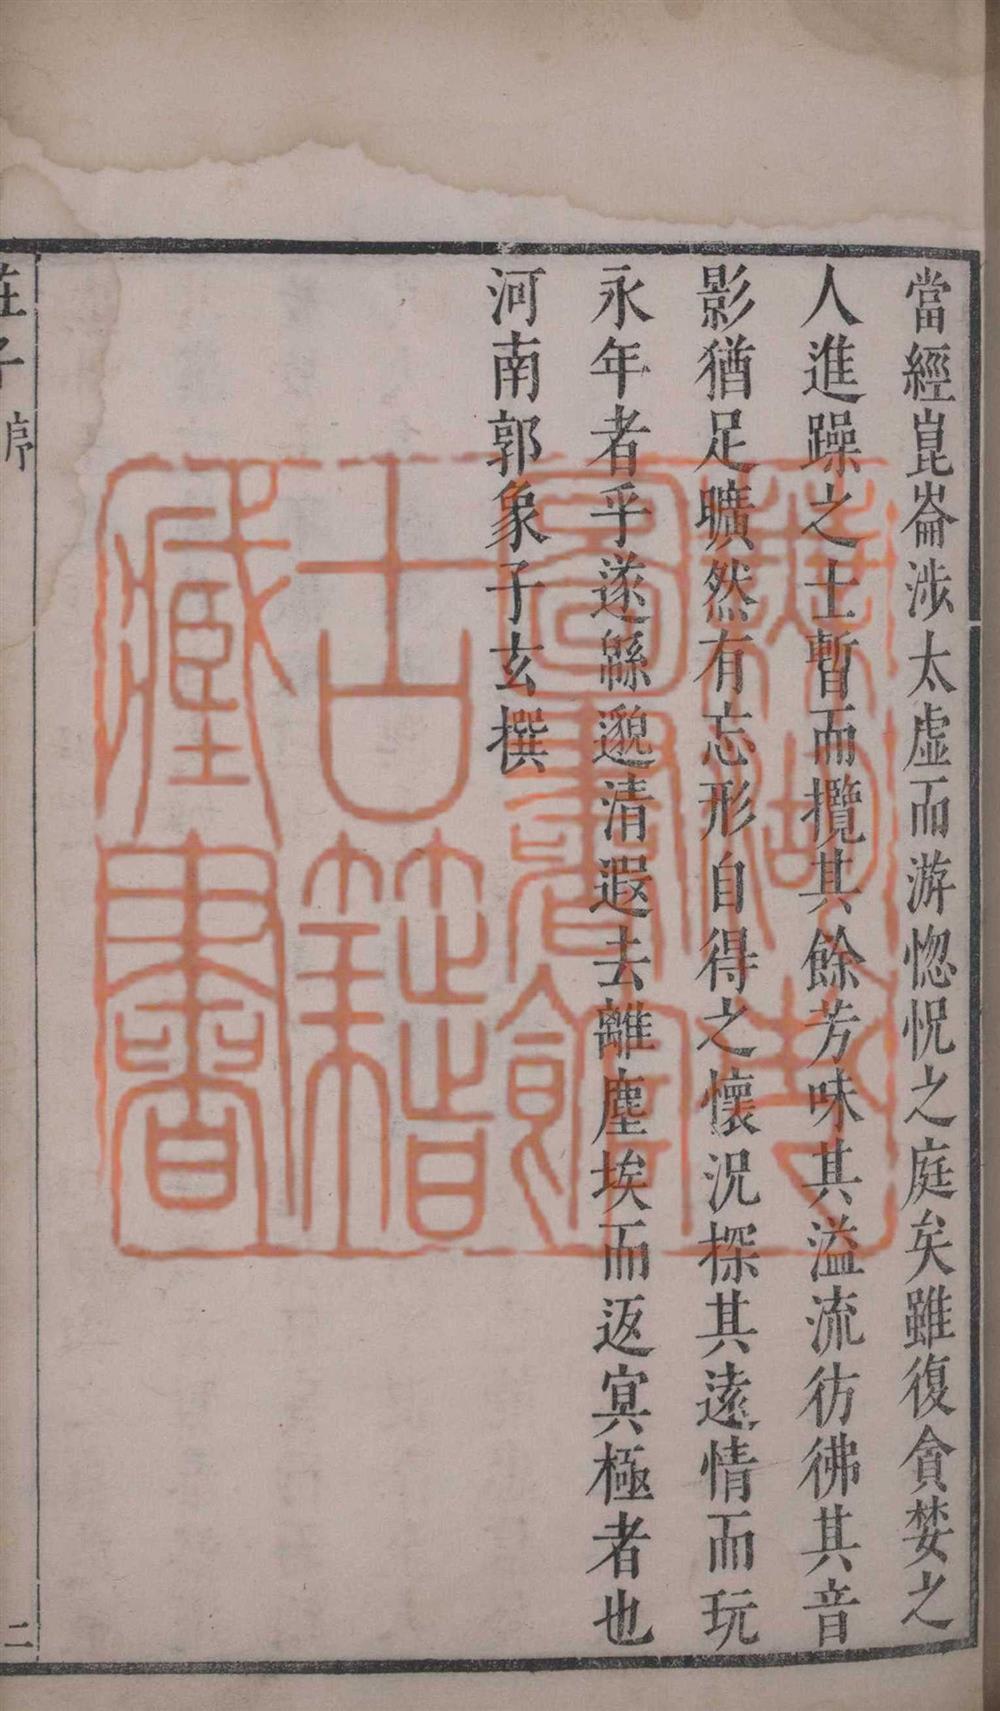 當經崑崙涉太虛而游惚怳之庭矣雖復貪婪之
人進躁之士暫而攬其餘芳味其溢流彷彿其音
影猶足曠然有忘形自得之懷況探其遠情而玩
永年者乎遂緜邈清遐去離塵埃而返冥極者也
河南郭象子玄撰
莊子 序
二
圖書館
古籍
藏書